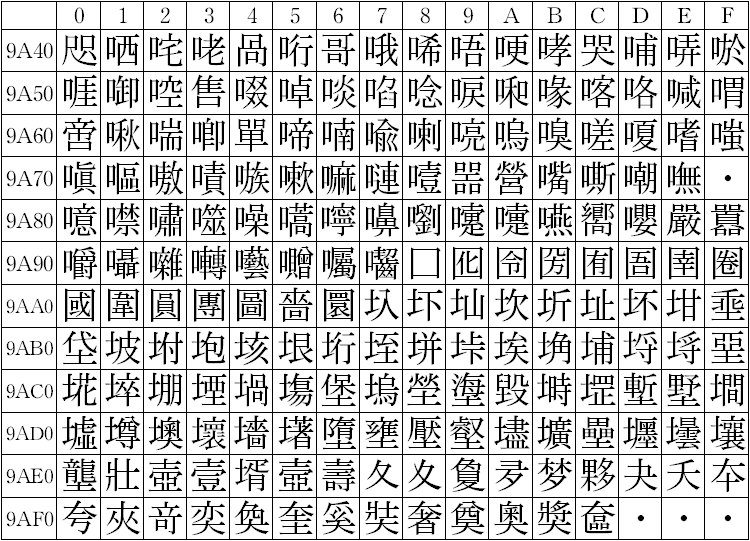 0 1 2 3 4 5 6 7 8 9 A B C D E F
9A40 咫 哂 咤 咾 咼 哘 哥 哦 唏 唔 哽 哮 哭 哺 哢 唹
9A50 啀 啣 啌 售 啜 啅 啖 啗 唸 唳 啝 喙 喀 咯 喊 喟
9A60 啻 啾 喘 喞 單 啼 喃 喩 喇 喨 嗚 嗅 嗟 嗄 嗜 嗤
9A70 嗔 嘔 嗷 嘖 嗾 嗽 嘛 嗹 噎 噐 營 嘴 嘶 嘲 嘸 ・
9A80 噫 噤 嘯 噬 噪 嚆 嚀 嚊 嚠 嚔 嚏 嚥 嚮 嚶 嚴 囂
9A90 嚼 囁 囃 囀 囈 囎 囑 囓 囗 囮 囹 圀 囿 圄 圉 圈
9AA0 國 圍 圓 團 圖 嗇 圜 圦 圷 圸 坎 圻 址 坏 坩 埀
9AB0 垈 坡 坿 垉 垓 垠 垳 垤 垪 垰 埃 埆 埔 埒 埓 堊
9AC0 埖 埣 堋 堙 堝 塲 堡 塢 塋 塰 毀 塒 堽 塹 墅 墹
9AD0 墟 墫 墺 壞 墻 墸 墮 壅 壓 壑 壗 壙 壘 壥 壜 壤
9AE0 壟 壯 壺 壹 壻 壼 壽 夂 夊 夐 夛 梦 夥 夬 夭 夲
9AF0 夸 夾 竒 奕 奐 奎 奚 奘 奢 奠 奧 奬 奩 ・ ・ ・